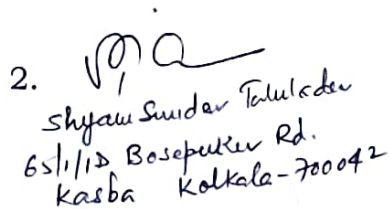 2.
Shyam Sundar Talukder
65/1/1D Bosepukur Rd.
Kasba Kolkala-700042